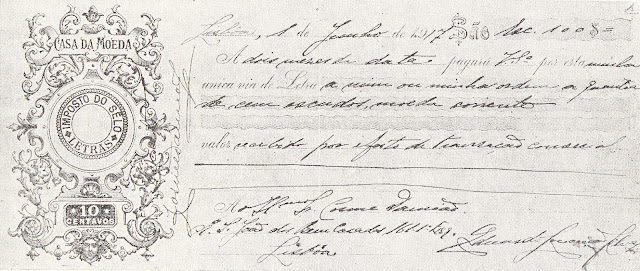 CASA DA MOEDA
IMPOSTO DO SÊLO
LETRAS
10
CENTAVOS
Lisbôa, 1 de Junho de 1917 São Esc. 100$=
A dois mezes da data pagará V. Sª por esta minha
unica via de Letra a mim ou minha ordem a quantia
de cem escudos, moeda corrente
valor recebido por efeito de transacão comercial.
Ao Ilmo Sr. Cosme Damião
Lisbôa